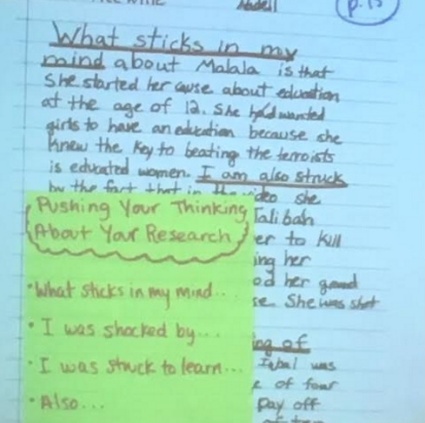 p. 15
What sticks in my
mind about Malala is that
she started her cause about education
at the age of 12. She had wanted
girls to have an education because she
knew the key to beating the terroists
is educated women. I am also struck
by the fact that in the video she
Pushing Your Thinking
Talibah
About Your Research
er to kill
ing her
od her good
What sticks in my mind...
se. She was shot
• I was shocked by...
ing of
• I was struck to learn...
Iqbal was
of four
• Also...
pay off